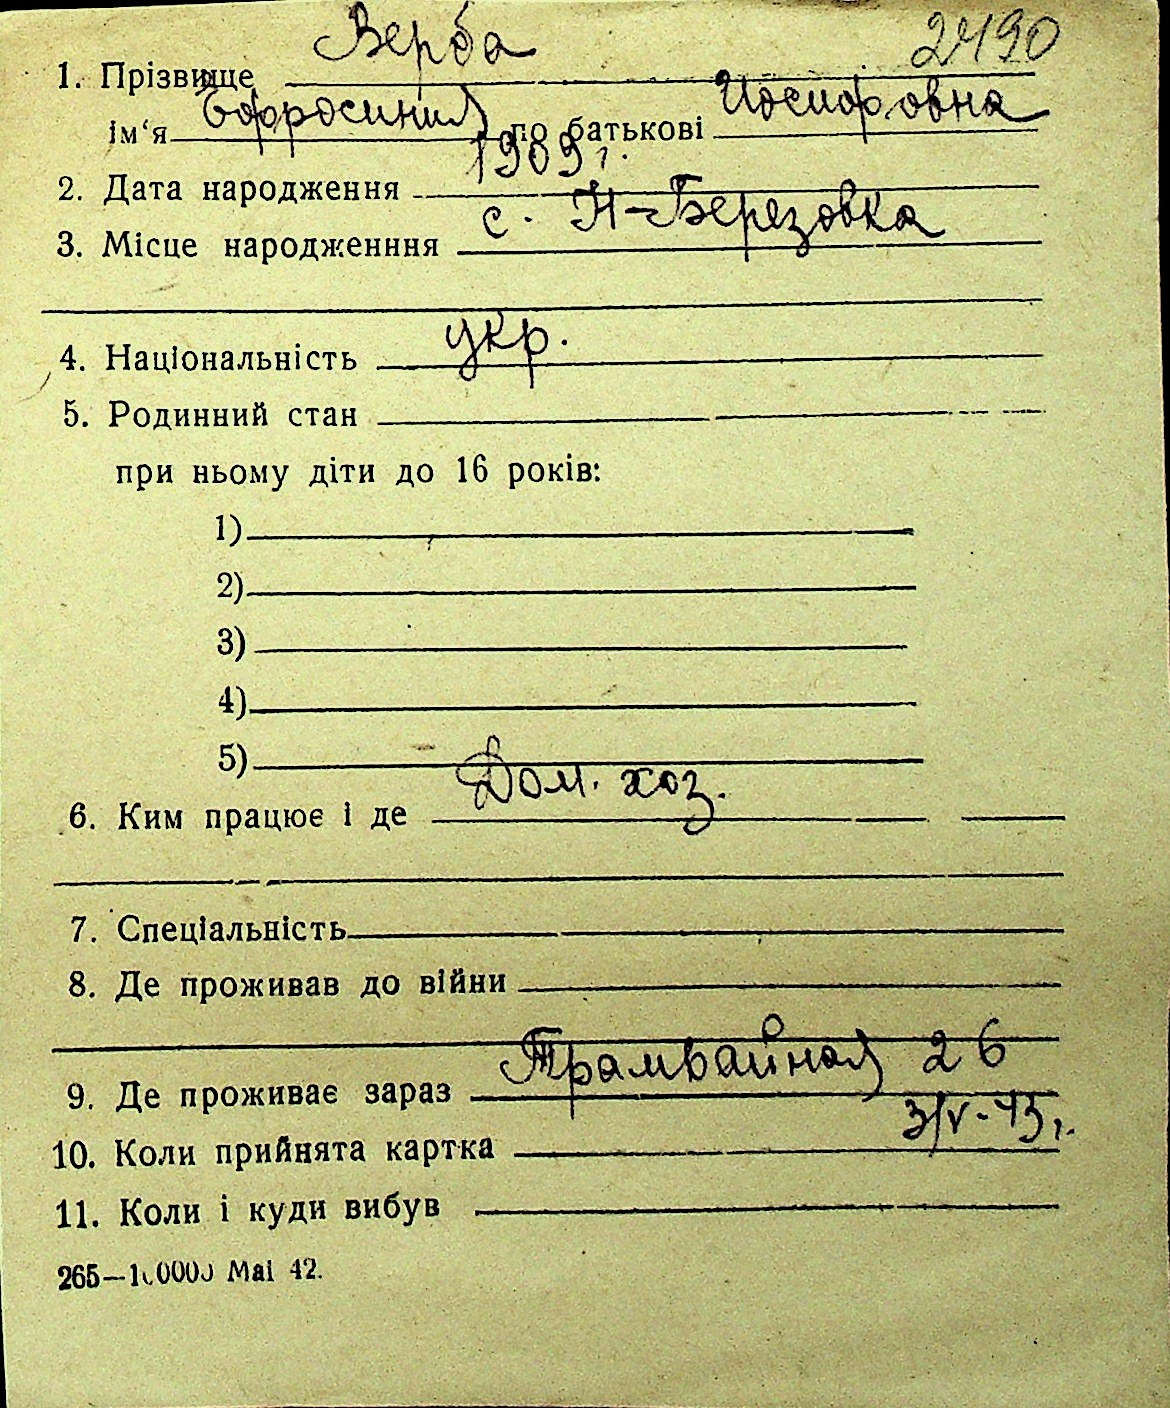 Верба 2490
1. Прізвище
ім‘я Ефросиния по батькові Иосифовна
2. Дата народження 1909 г.
3. Місце народженння с. Н-Березовка
4. Національність укр.
5. Родинний стан
при ньому діти до 16 років:
1)
2)
3)
4)
5)
6. Ким працює і де Дом. хоз.
7. Спеціальність
8. Де проживав до війни
9. Де проживає зараз Трамвайная 26
10. Коли прийнята картка 3/V-43г.
11. Коли і куди вибув
265—10000 Mai 42.